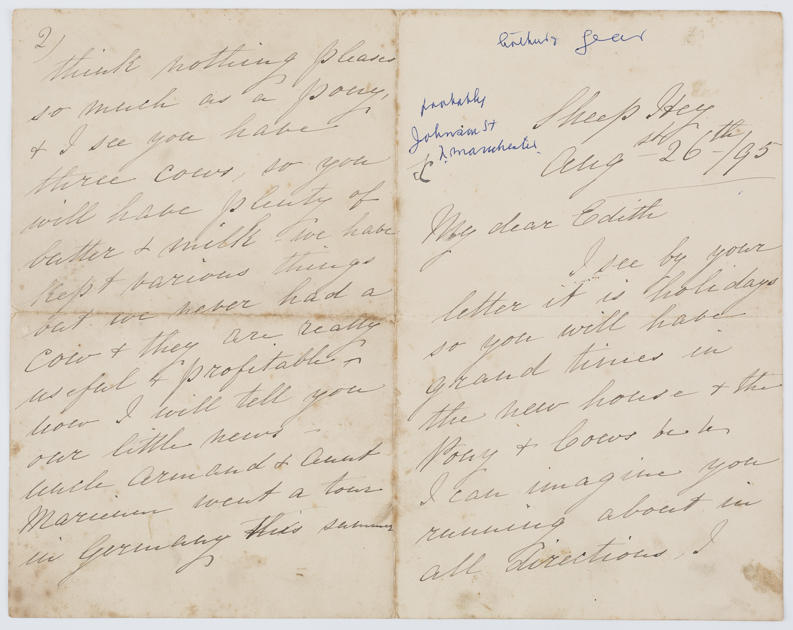 Gear
probably
Johnson St
Manchester
Sheep Hey
Aug 26th /95
My dear Edith
I see by your
letter it is holidays
so you will have
grand times in
the new house & the
Pony & Cows
I can imagine you
running about in
all directions, I
2)
think nothing pleases
so much as a pony,
& I see you have
three cows, so you
will have plenty of
butter & milk - we have
kept various things
but we never had a
cow & they are really
useful & profitable -
now I will tell you
our little news -
Uncle Armand & Aunt
went a tour
in Germany this summer